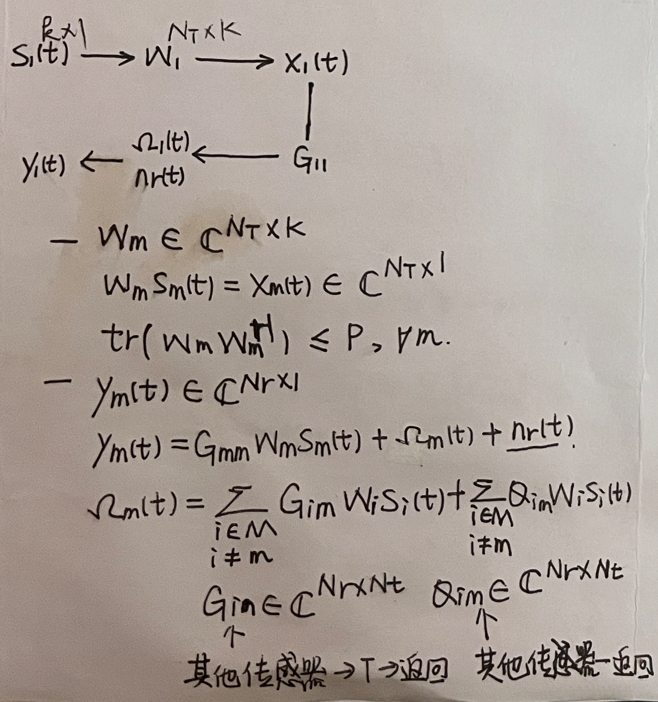 k×1
S₁(t) → W₁ N_T×K → X₁(t)
y₁(t) ← Ω₁(t) nr(t) ← G₁₁
— Wm ∈ ℂ^{N_T×K}
WmSm(t) = Xm(t) ∈ ℂ^{N_T×1}
tr(WmWm^H) ≤ P, ∀m.
— ym(t) ∈ ℂ^{Nr×1}
ym(t) = Gmm Wm Sm(t) + Ωm(t) + nr(t)
Ωm(t) = Σ_{i∈M, i≠m} Gim WiSi(t) + Σ_{i∈M, i≠m} Qim WiSi(t)
Gim ∈ ℂ^{Nr×Nt} Qim ∈ ℂ^{Nr×Nt}
↑ ↑
其他传感器→T→返回 其他传感器—返回